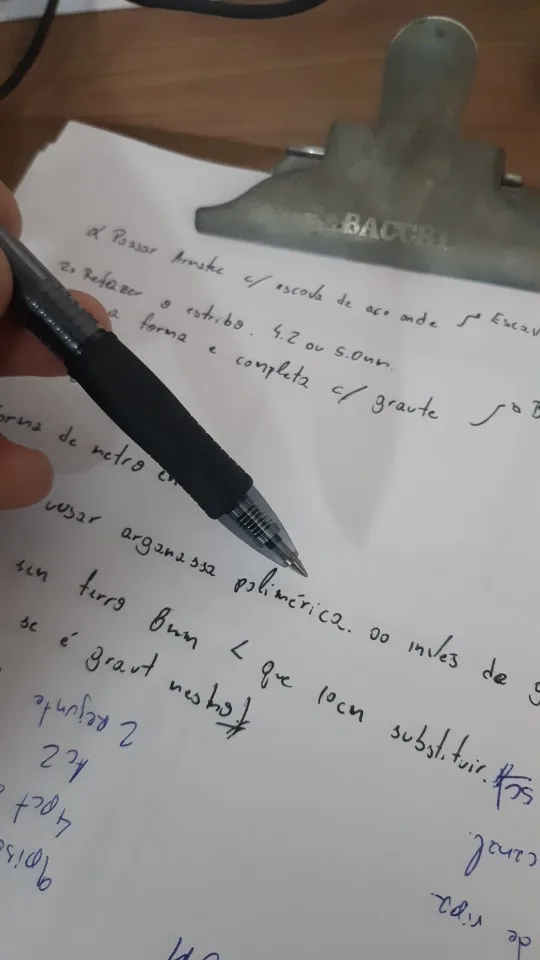 BACCR
Passar Armatec c/ escova de aço onde
2> Refazer o estribo. 4.2 ou 5.0mm.
a forma e completa c/ graute
de metro
usar arganassa polimérica. ao invés de
sem ferro 8mm < que 10cm substituir.
se é graut mesmo!
2 rejunte
Ac2
4pct
canal.
de ripa